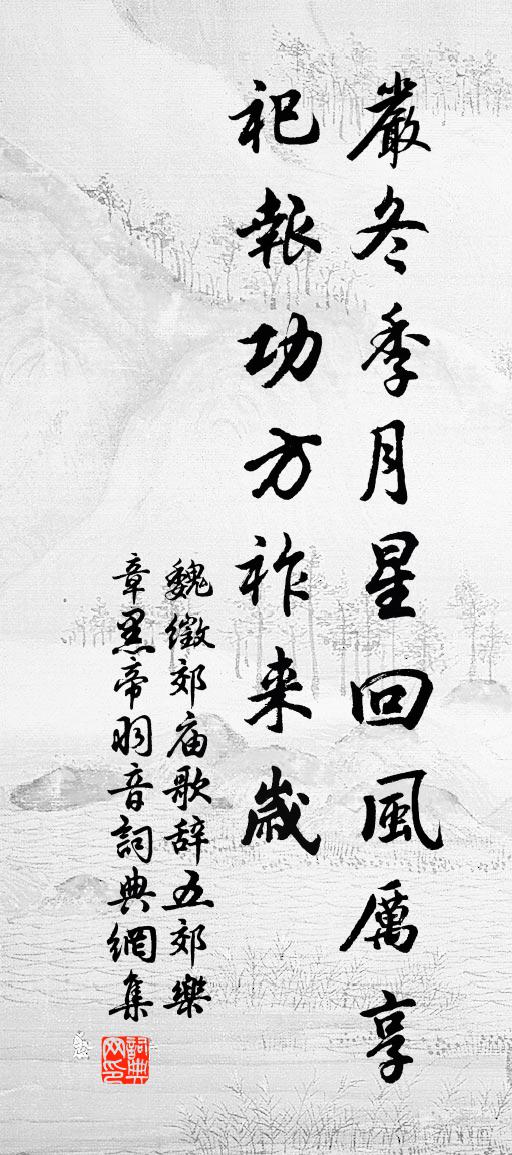 嚴冬季月星回風厲享
祀報功方祚来歲
魏徵郊庙歌辞五郊樂
章黑帝羽音詞典網集